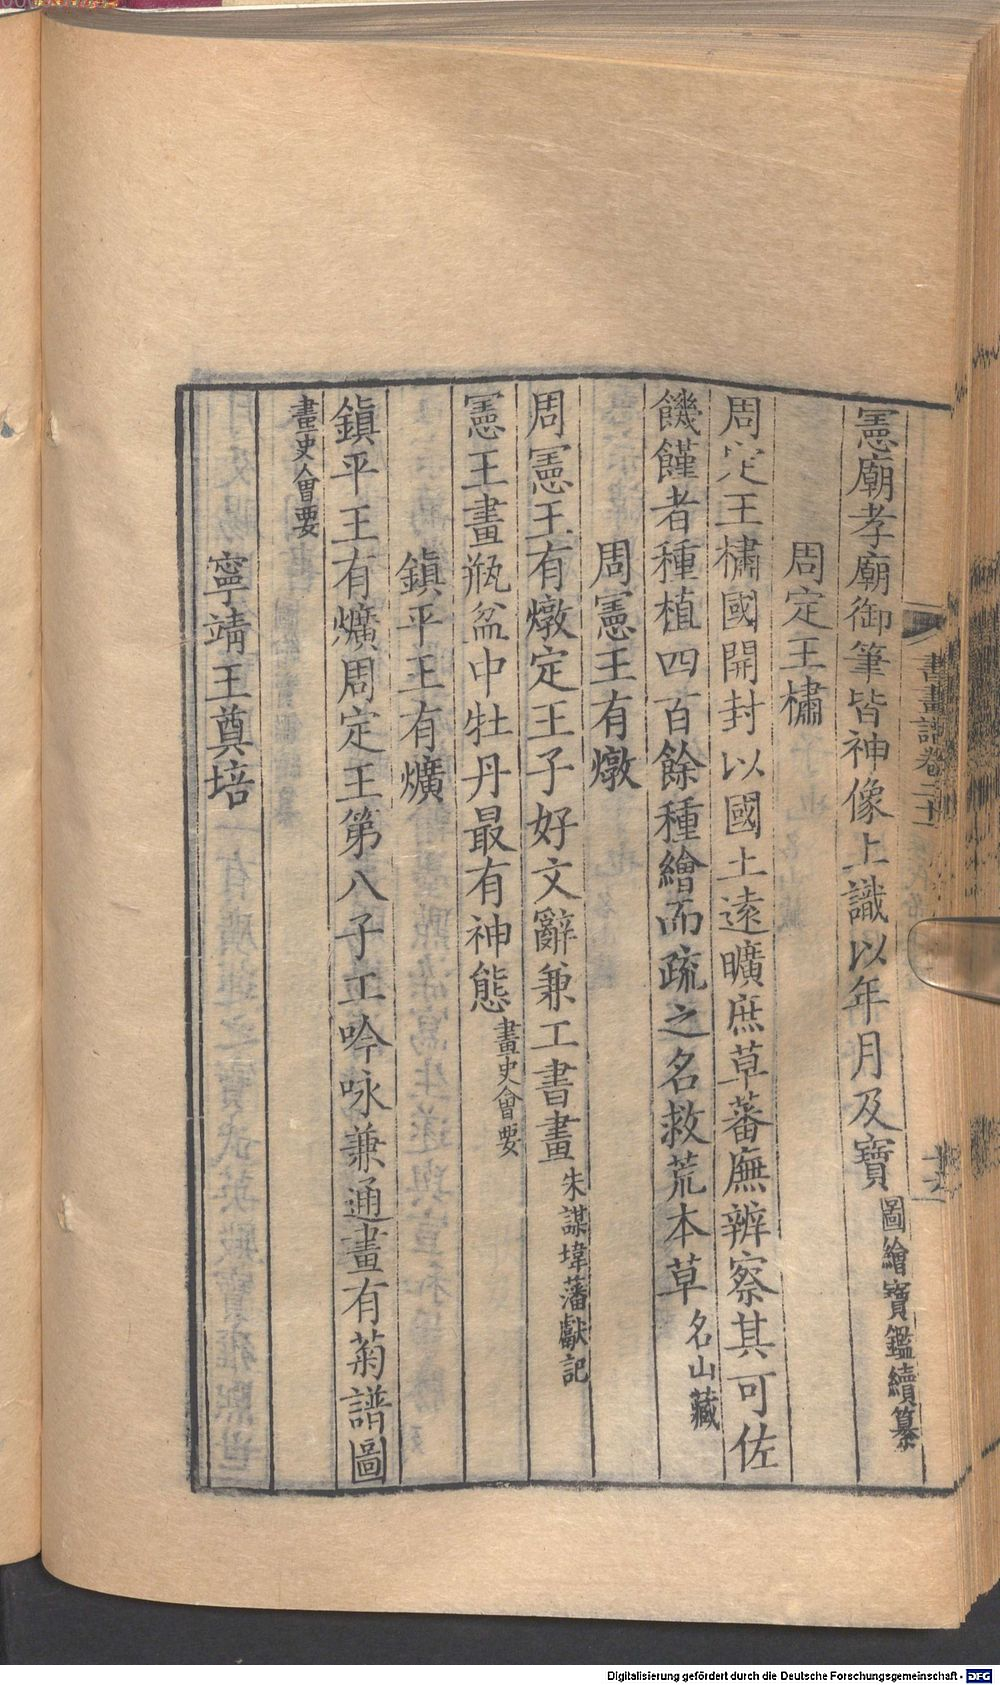 憲廟孝廟御筆皆神像上識以年月及寶圖繪寶鑑續纂
周定王橚
周定王橚國開封以國土遠曠庶草蕃廡辨察其可佐
饑饉者種植四百餘種繪而疏之名救荒本草名山藏
周憲王有燉
周憲王有燉定王子好文辭兼工書畫朱謀㙔藩獻記
憲王畫瓶盆中牡丹最有神態畫史會要
鎮平王有爌
鎮平王有爌周定王第八子工吟咏兼通畫有菊譜圖
畫史會要
寧靖王奠培
書畫譜卷二十
Digitalisierung gefördert durch die Deutsche Forschungsgemeinschaft - DFG